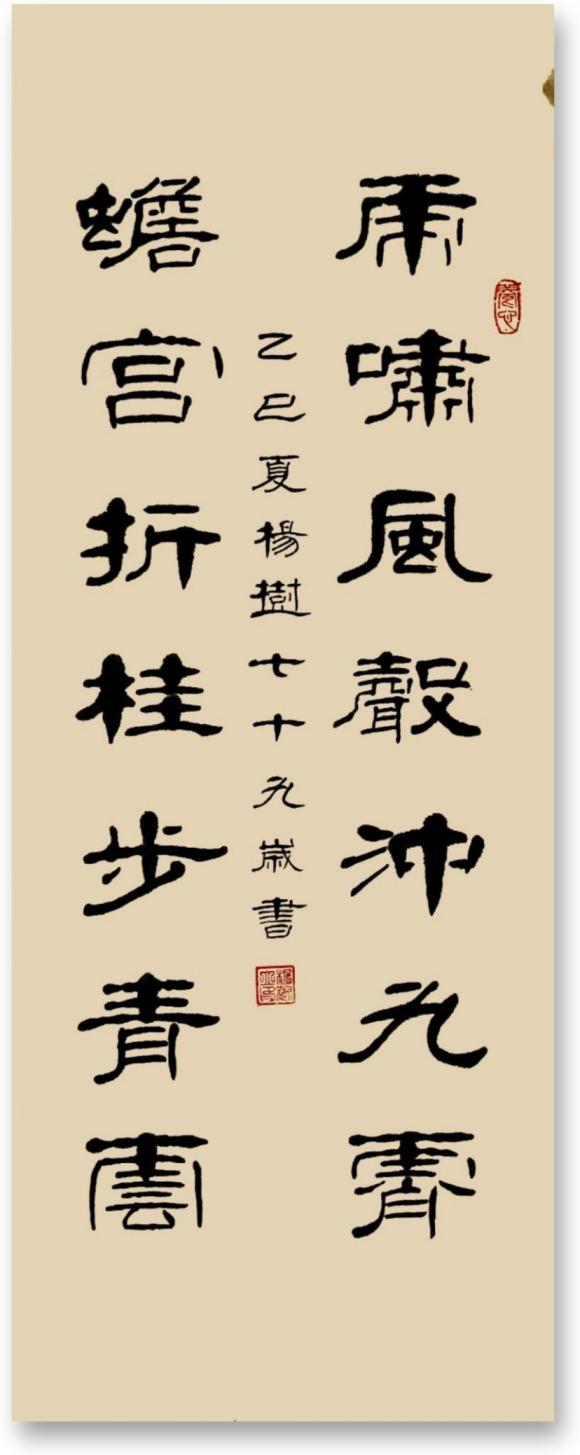 虎嘯風聲沖九霄
乙巳夏楊樹七十九歲書
蟾宫折桂步青雲